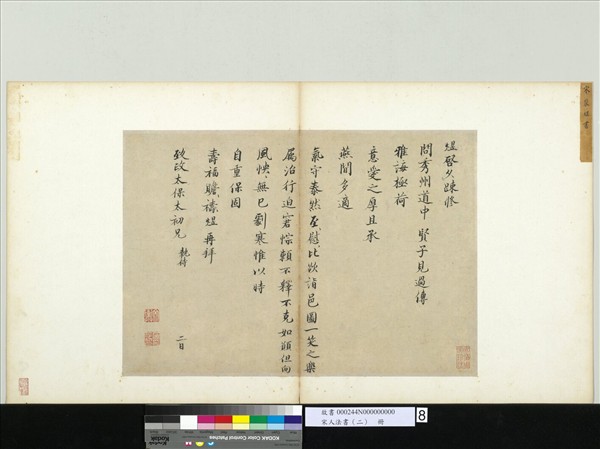 縕啓久疎修
問秀州道中 賢子見過傳
雅誨極荷
意愛之厚且承
燕閒多適
氣守泰然至慰比欲詣邑圖一笑之樂
屬治行迫窘悰賴不釋不克如願但向
風怏怏無已劇寒惟以時
自重保固
壽福瞻禱縕再拜
致政太保太初兄 執侍
二日
故書 000244N000000000
宋人法書(二) 冊
8
Kodak
KODAK Color Control Patches